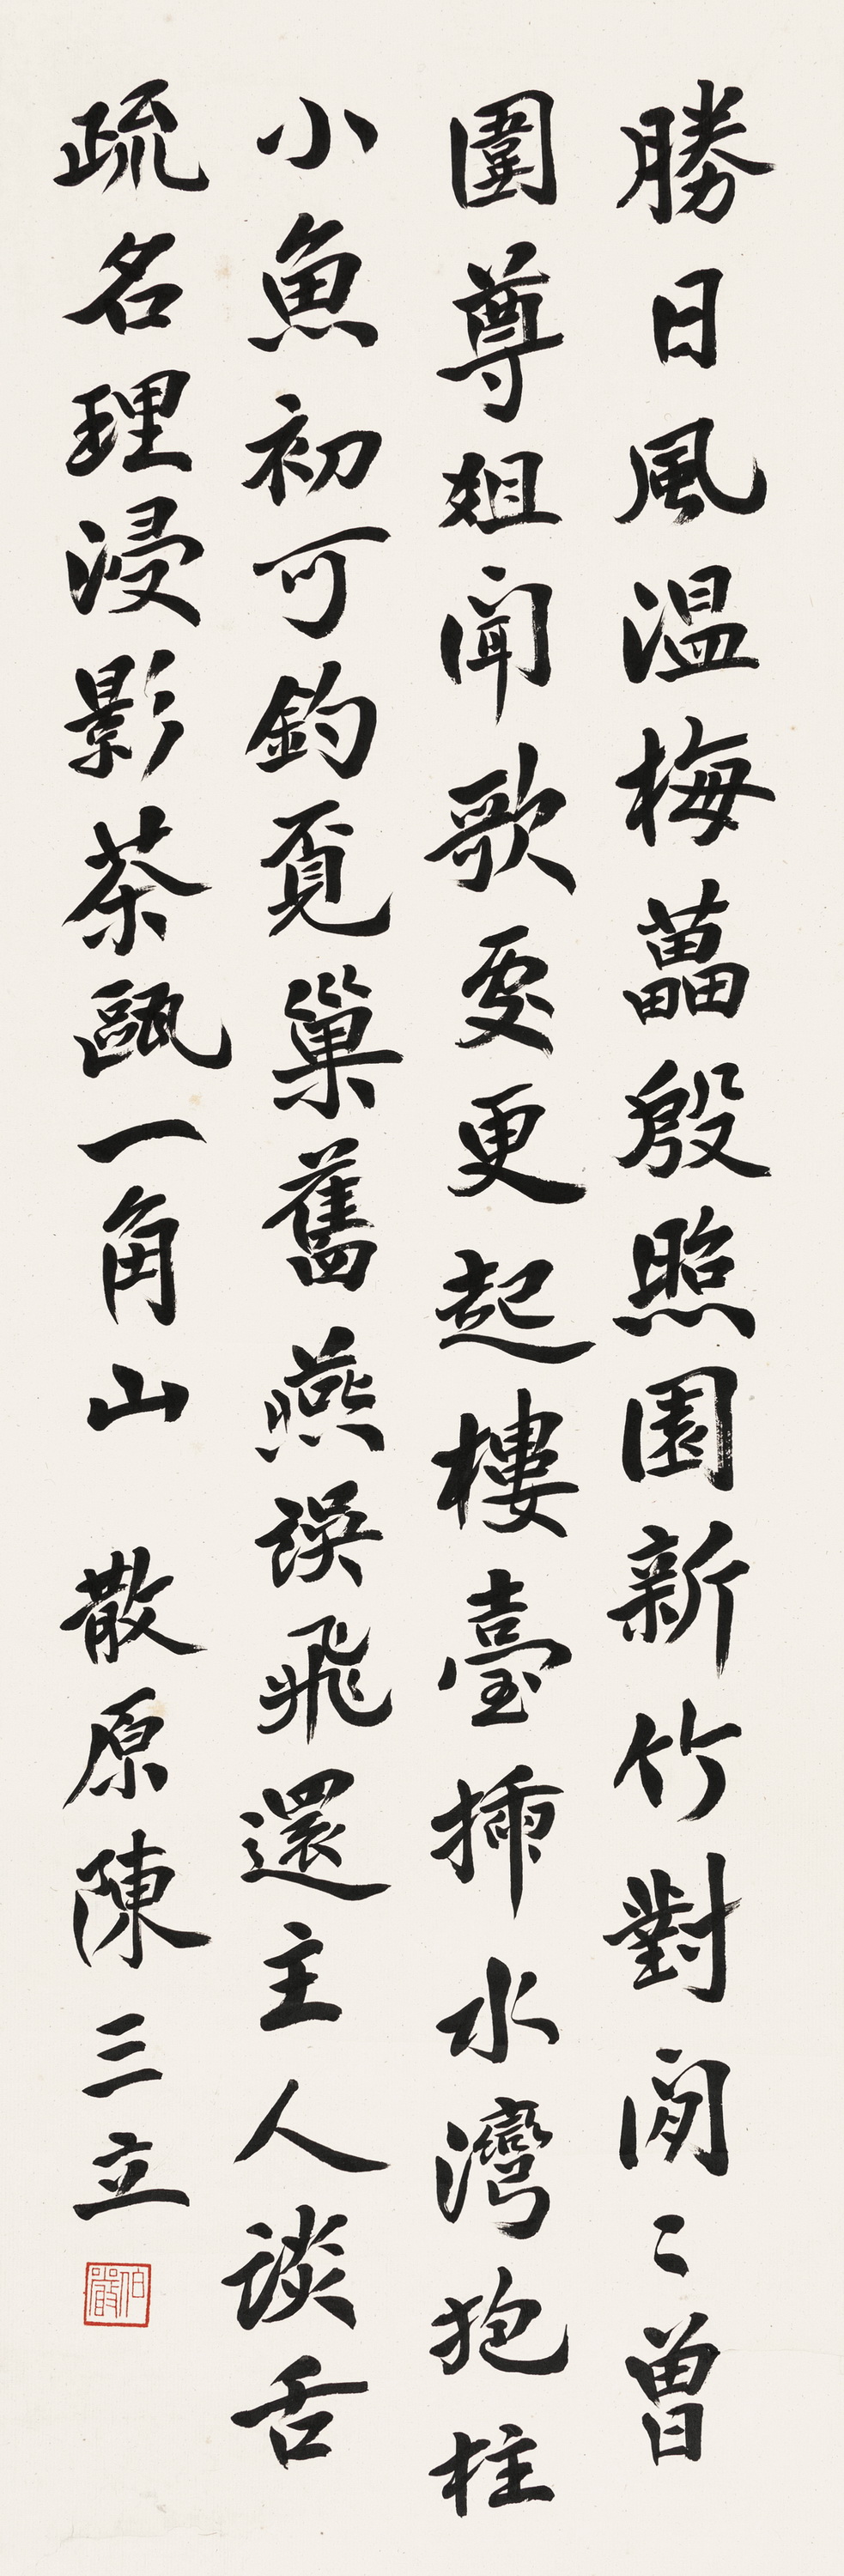 勝日風温梅藟殷照園新竹對閑〻曾
圍尊俎聞歌處更起樓臺插水灣抱柱
小魚初可釣覓巢舊燕誤飛還主人談舌
疏名理浸影茶甌一角山 散原陳三立
伯嚴